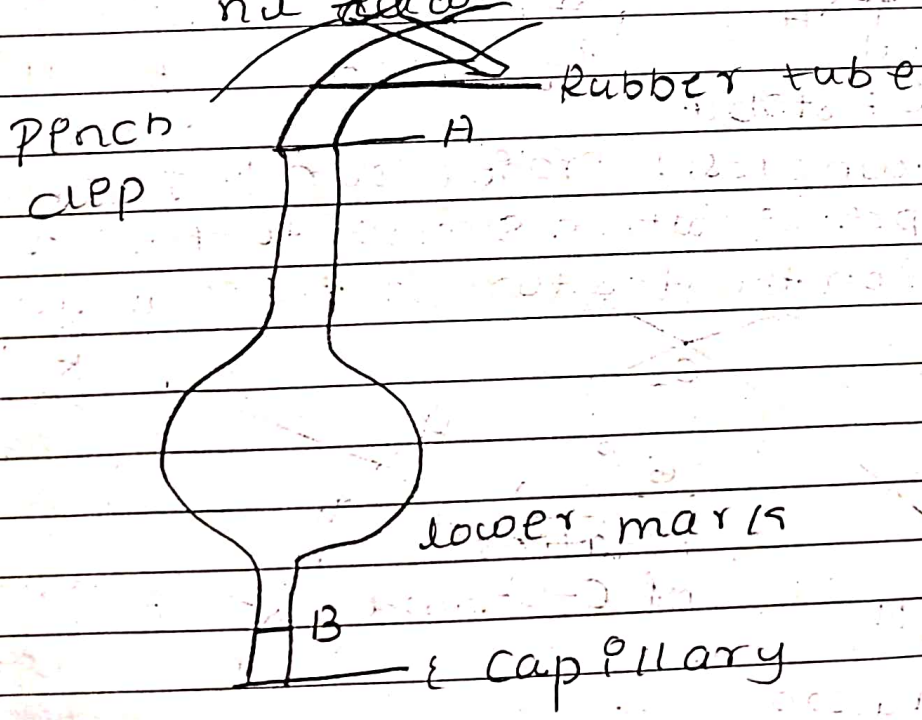 Rubber tube
A
Pench
clep
lower mark
B
Capillary